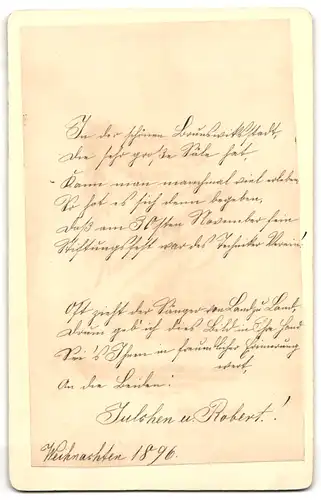 In der schönen Brunswiksstadt,
Die sehr große Säle hat,
Kann man manchmal viel erleben
So hat es sich denn begeben,
Daß am 30sten November fein
Stiftungsfest war des Techniker Verein!
Oft zieht der Sänger von Land zu Land,
Drum geb ich dies Bild in Ihre Hand
Sei's Ihnen in freundlicher Erinnerung
wert,
An die Beiden!
Julchen u. Robert.!
Weihnachten 1896.